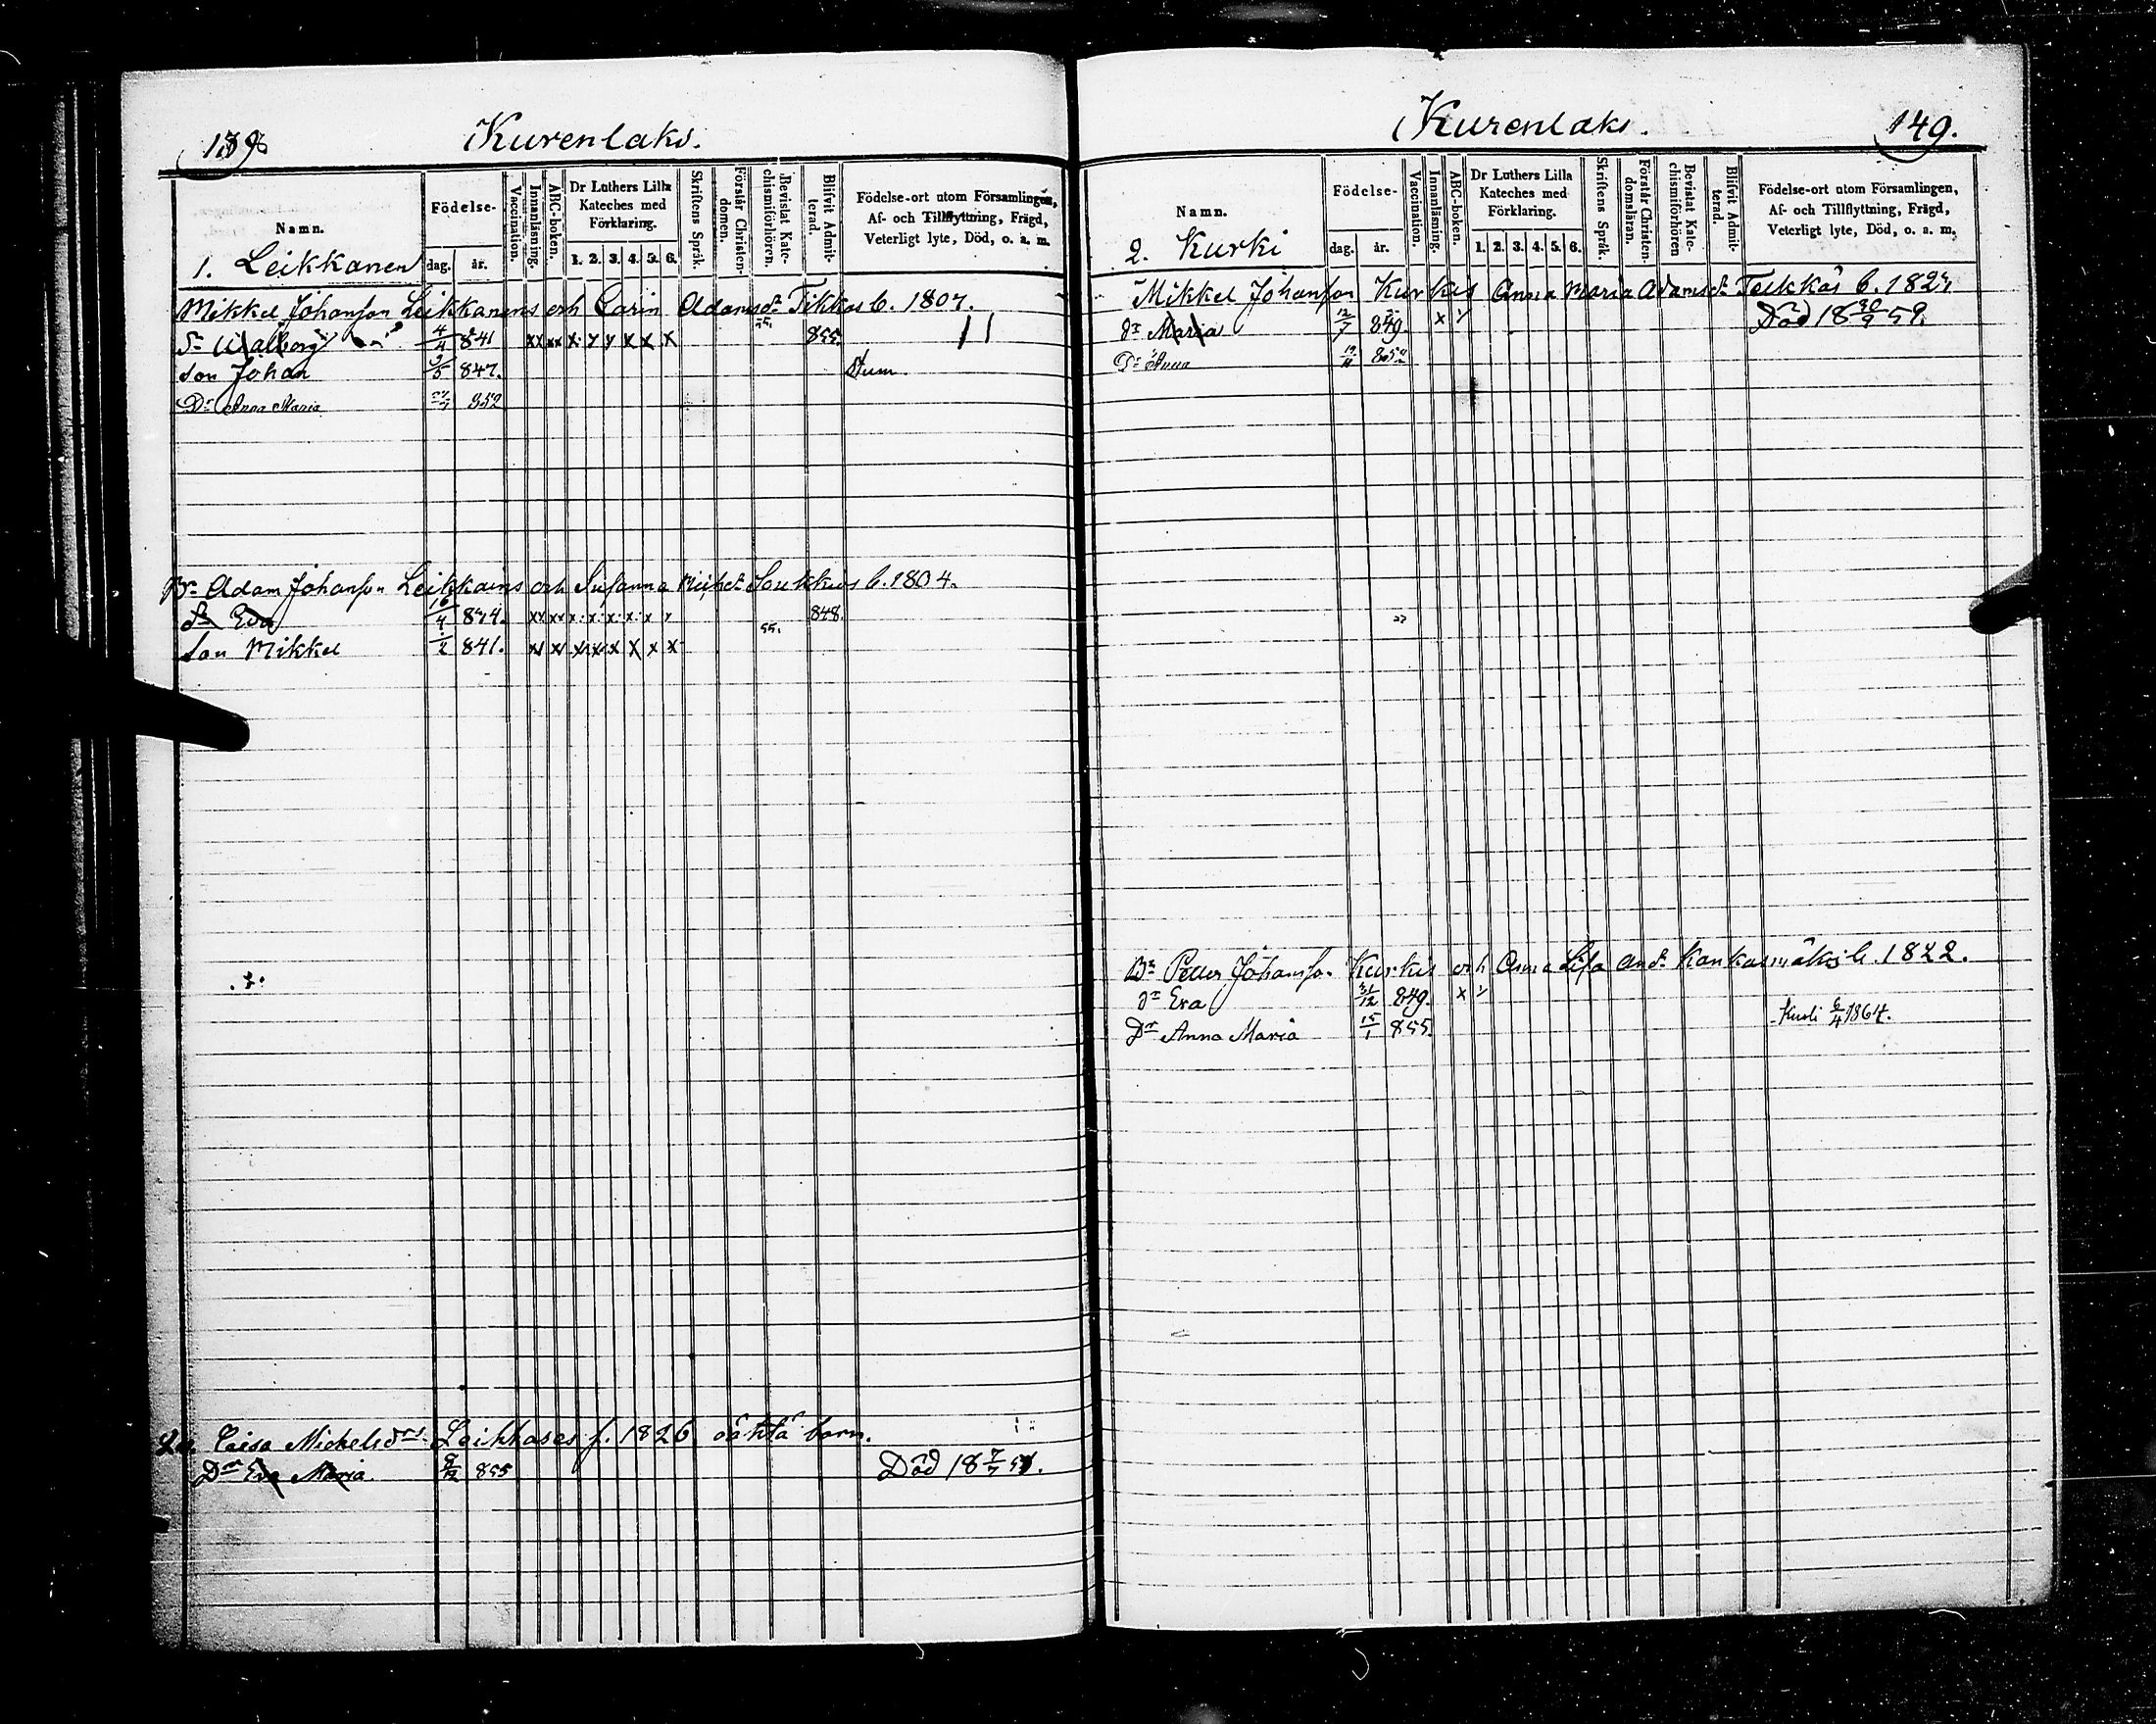 Kurenlaks.
Namn.
Födelse-
dag. år.
Vaccination.
Innanläsning.
ABC-boken.
Dr Luthers Lilla Kateches med Förklaring.
1. 2. 3. 4. 5. 6.
Skriftens Språk.
Förstår Christendomen.
Bevistat Katechismiförhören.
Blifvit Admitterad.
Födelse-ort utom Församlingen,
Af- och Tillflyttning, Frägd,
Veterligt lyte, Död, o. a. m.
1. Leikkanen
Mikkel Johansson Leikkanens och Carin Adamsdr Tikkas b. 1807.
dr Walborg 4/4 841 xx xx x x x x 855.
Son Johan 2/5 847. Stum.
Dr Anna Maria 852
Br Adam Johansson Leikkains och Susanna Soukkus b. 1804.
dr Eva 16/4 834. xx xx x x x x x 848.
55.
Son Mikkel 1/2 841. xx xx x x x x x x
Caisa Michelsdrs Leikkases f. 1826 oäkta barn.
Dr Eva Maria 9/12 855 Död 18 7/7 57.
Kurenlaks. 149.
Namn.
Födelse-
dag. år.
Vaccination.
Innanläsning.
ABC-boken.
Dr Luthers Lilla Kateches med Förklaring.
1. 2. 3. 4. 5. 6.
Skriftens Språk.
Förstår Christendomsläran.
Bevistat Katechismiförhören
Blifvit Admitterad.
Födelse-ort utom Församlingen,
Af- och Tillflyttning, Frägd,
Veterligt lyte, Död, o. a. m.
2. Kurki
Mikkel Johansson Kurkis Anna Maria Adamsdr Teikkas b. 1824
dr Maria 12/7 849 x Död 18 30/9 59.
Dr Anna 19/11 852
Br Petter Johansson Kurkis och Anna Lisa Andr Kankasmäkis b. 1822.
dr Eva 31/12 849. x
Kuoli 6/4 1864.
Dr Anna Maria 15/1 855.